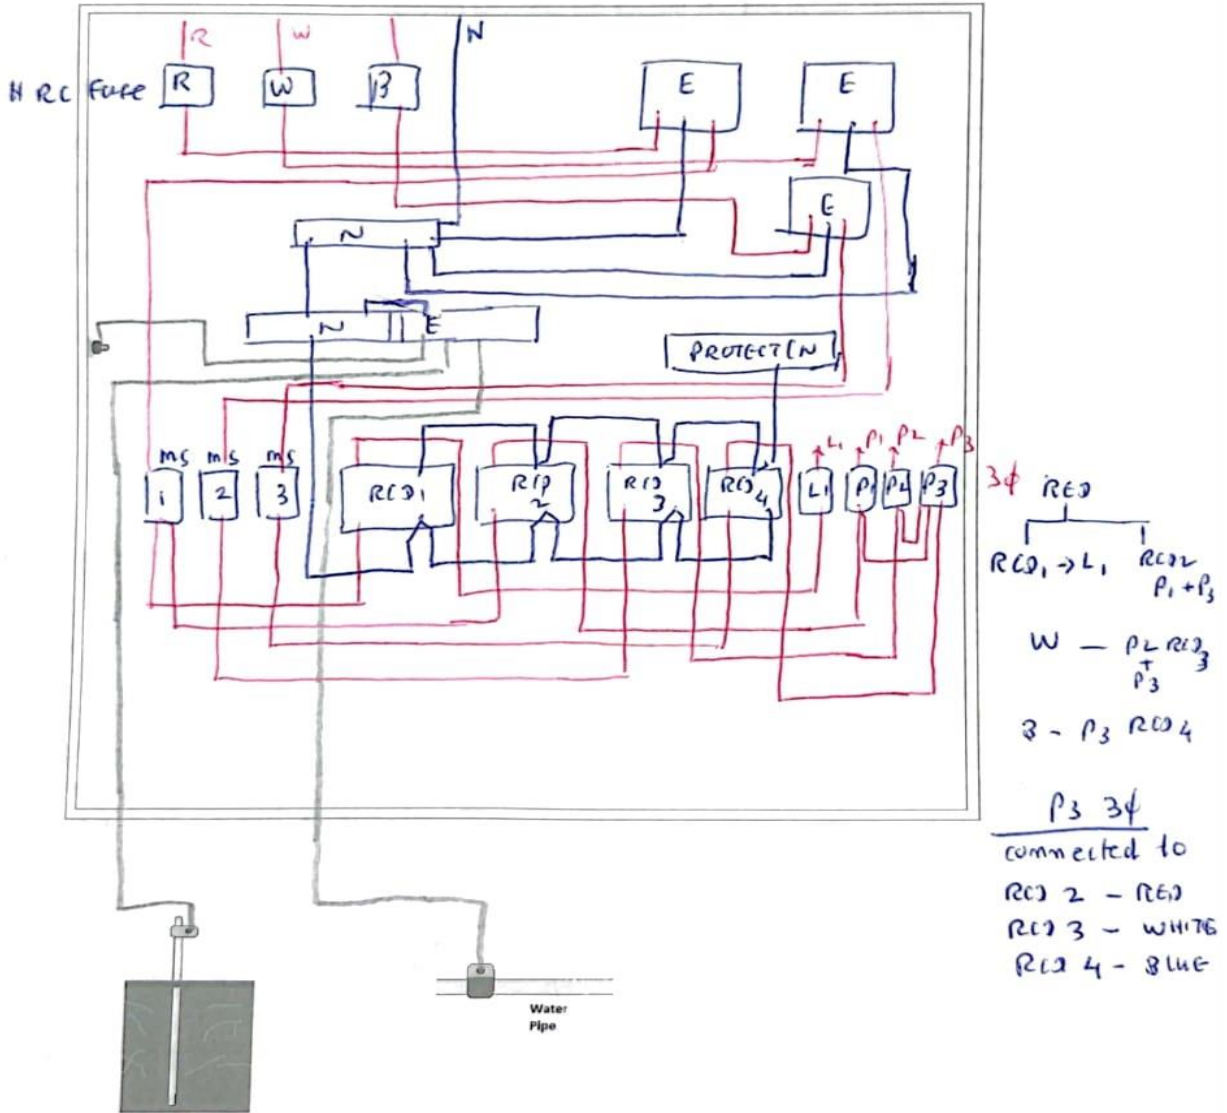 R W N
HRC Fuse R W B E E
E
N
N E
PROTECT(N
ms ms ms
1 2 3 RCD1 RCD 2 RCD 3 RCD 4 L1 P1 P2 P3
L1 P1 P2 P3
3φ RED
RCD1 → L1 RCD2
P1 + P3
W — P2 RCD3
+
P3
B - P3 RCD4
P3 3φ
connected to
RCD 2 - RED
RCD 3 - WHITE
RCD 4 - BLUE
Water
Pipe